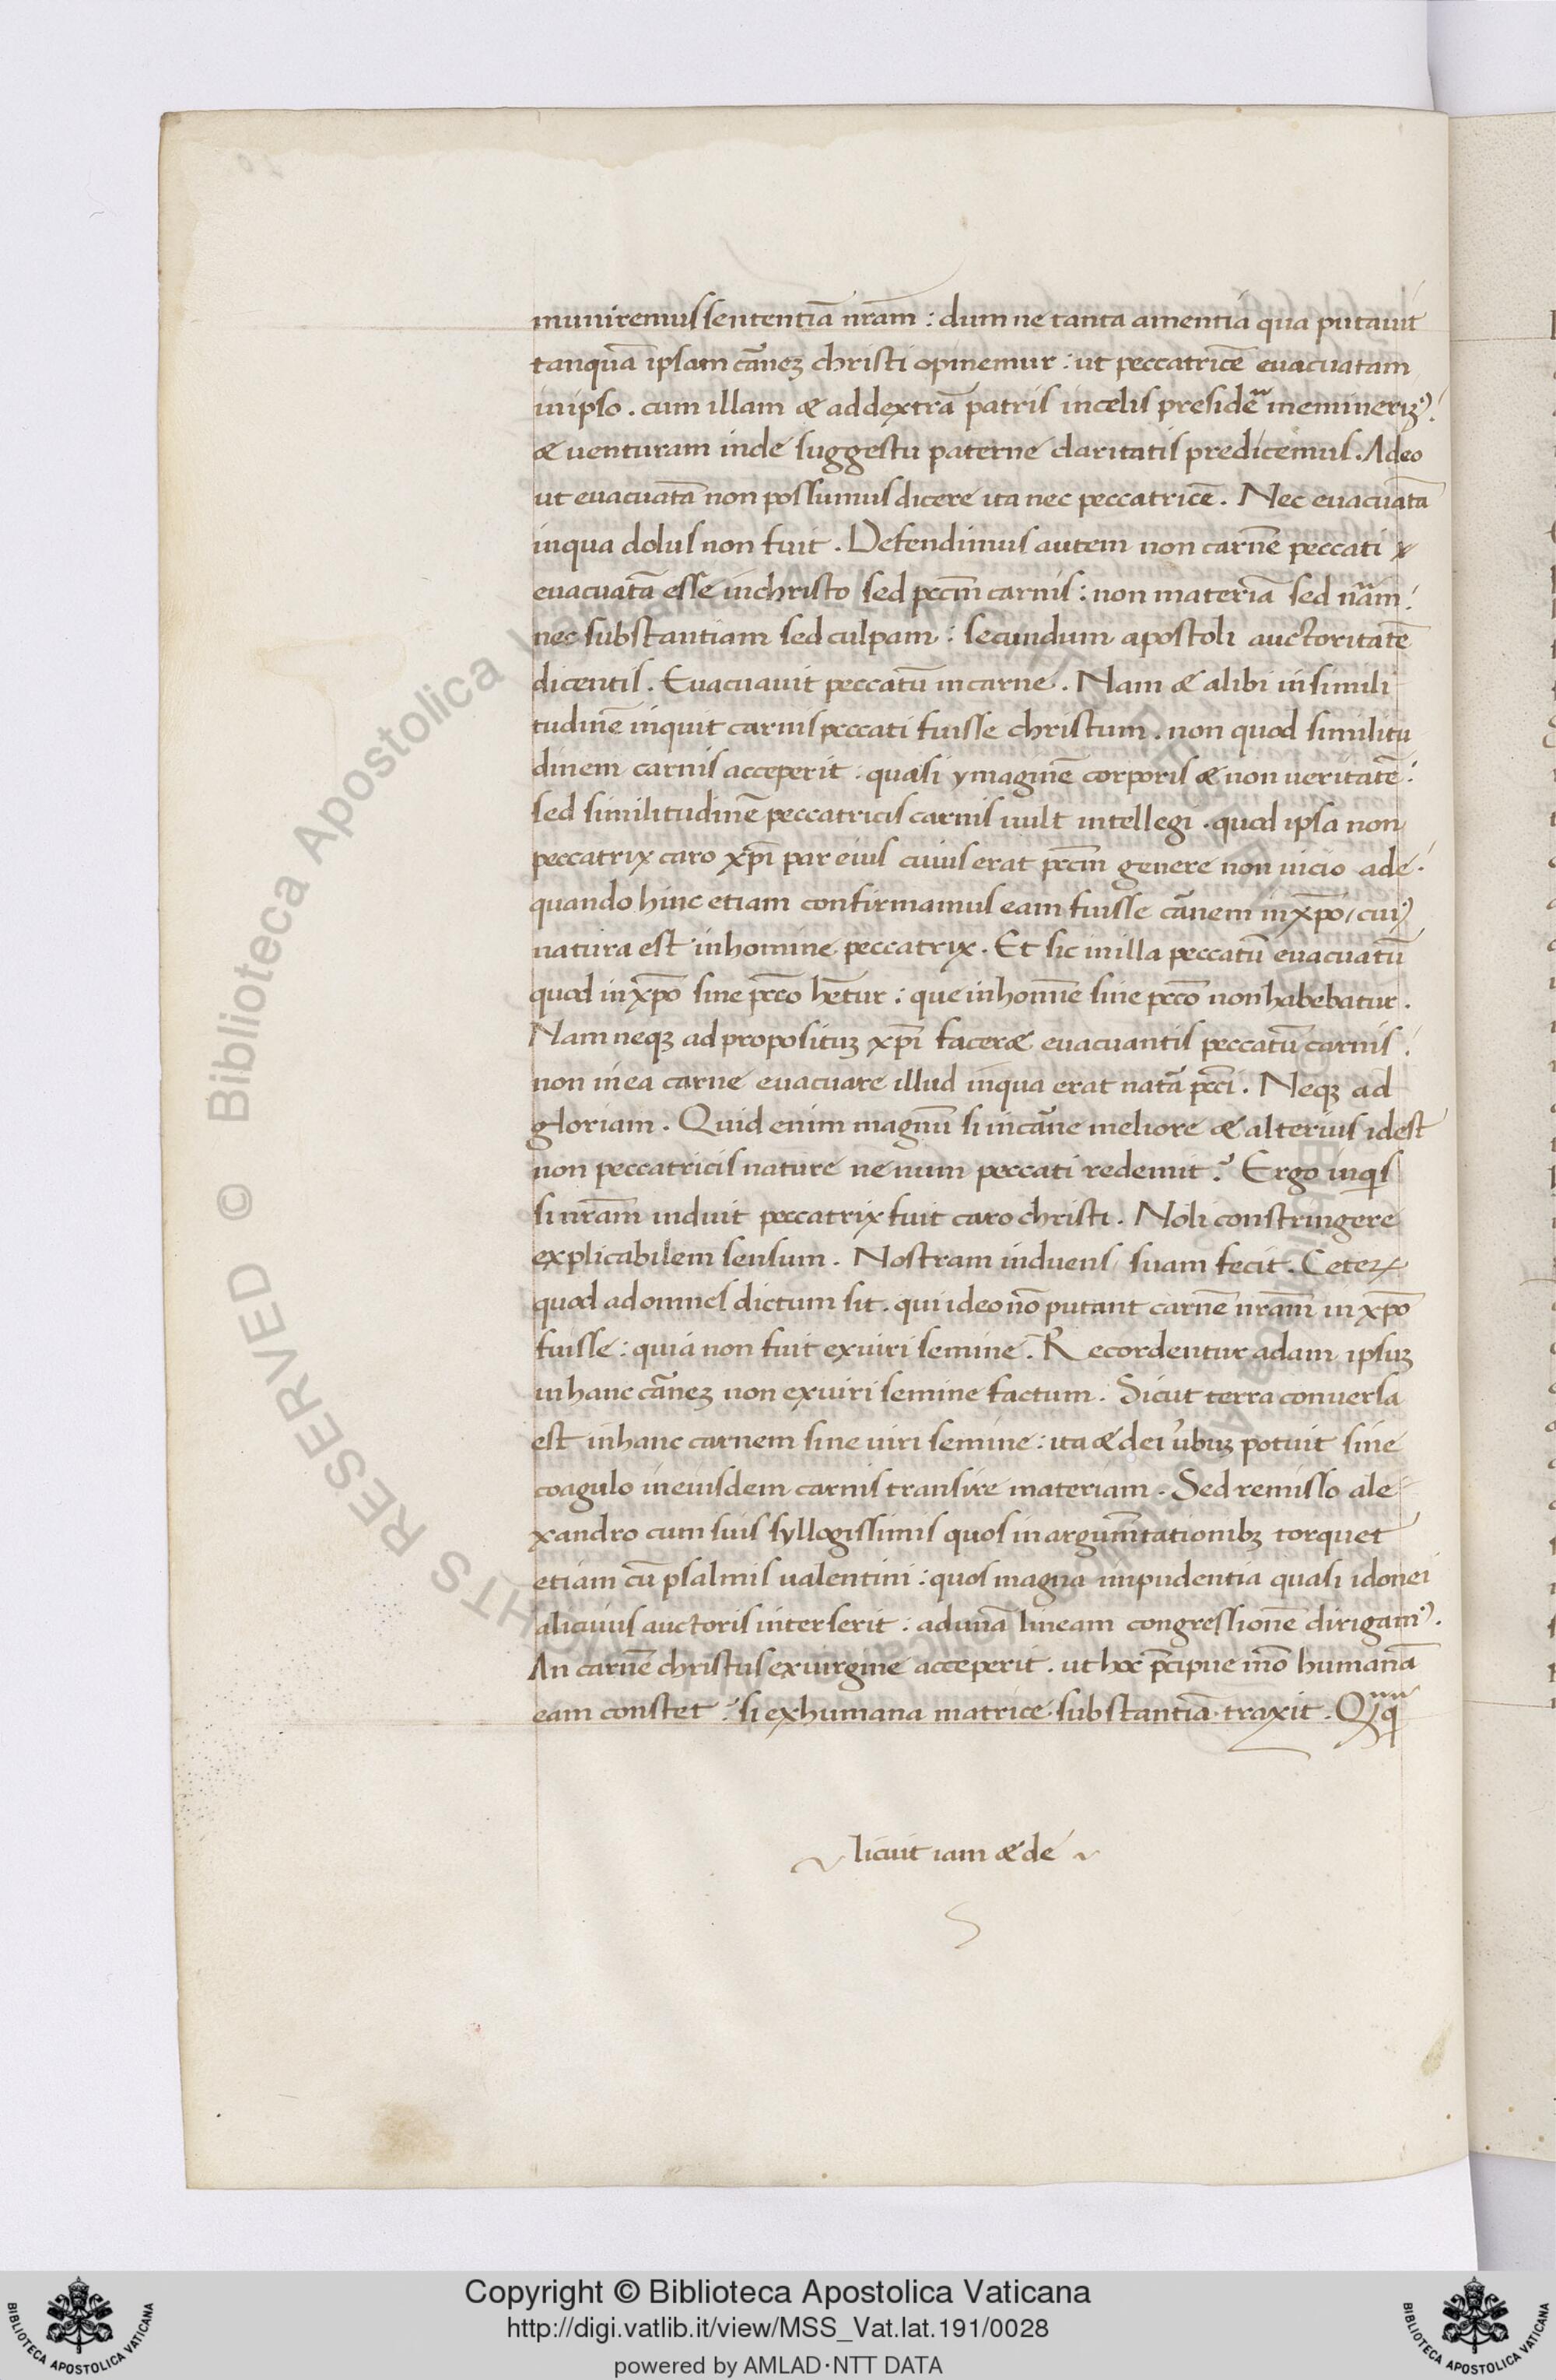 muniremus sententiā nr̄am : dum ne tanta amentia qua putauit
tanquā ipsam cārneꝫ christi opinemur : ut peccatricē euacuatam
in ipso . cum illam & ad dextrā patris in celis presidēr meminerimꝰ :
& uenturam inde suggestu paterne claritatis predicemus . Adeo
ut euacuatā non possumus dicere ita nec peccatricē . Nec euacuatā
in qua dolus non fuit . Defendimus autem non carnē peccati
euacuatā esse in christo sed pcc̄m carnis : non materiā sed nāram :
nec substantiam sed culpam : secundum apostoli auctoritatē
dicentis . Euacuauit peccatū in carne . Nam & alibi in simili
tudinē inquit carnis peccati fuisse christum . non quod similitu
dinem carnis acceperit : quasi ymaginē corporis & non ueritatē :
sed similitudinē peccatricis carnis uult intellegi . quod ipsa non
peccatrix caro xp̄i par eius cuius erat pcc̄m genere non uicio ade .
quando hinc etiam confirmamus eam fuisse cārnem in xp̄o / cuiꝰ
natura est in homine peccatrix . Et sic in illa peccatū euacuatū
quod in xp̄o sine pcc̄o hētur : que in homīe sine pcc̄o non habebatur .
Nam neqꝫ ad propositūꝫ xp̄i facer& euacuantis peccatū carnis .
non in ea carne euacuare illud in qua erat natā pcc̄i . Neqꝫ ad
gloriam . Quid enim magnū si in cārne meliore & alterius idest
non peccatricis nature ne num peccati redemit ? Ergo inqis
si nr̄am induit peccatrix fuit caro christi . Noli constringere
explicabilem sensum . Nostram induens / suam fecit . Ceteꝝ
quod ad omnes dictum sit . qui ideo nō putant carnē nr̄am in xp̄o
fuisse : quia non fuit ex uiri semine . Recordentur adam ipsuꝫ
in hanc cārneꝫ non ex uiri semine factum . Sicut terra conuersa
est in hanc carnem sine uiri semine : ita & dei u̓buꝫ potuit sine
coagulo in eiusdem carnis transire materiam . Sed remisso ale
xandro cum suis syllogissimis quos in argum̄tationibꝫ torquet
etiam cū psalmis ualentini : quos magna impudentia quasi idonei
alicuius auctoris interserit : ad unā lineam congressionē dirigamꝰ .
An carnē christus ex uirgine acceperit . ut hoc p̄cipue mō humanā
eam constet : si ex humana matrice substantiā traxit . Qnq
licuit iam & de